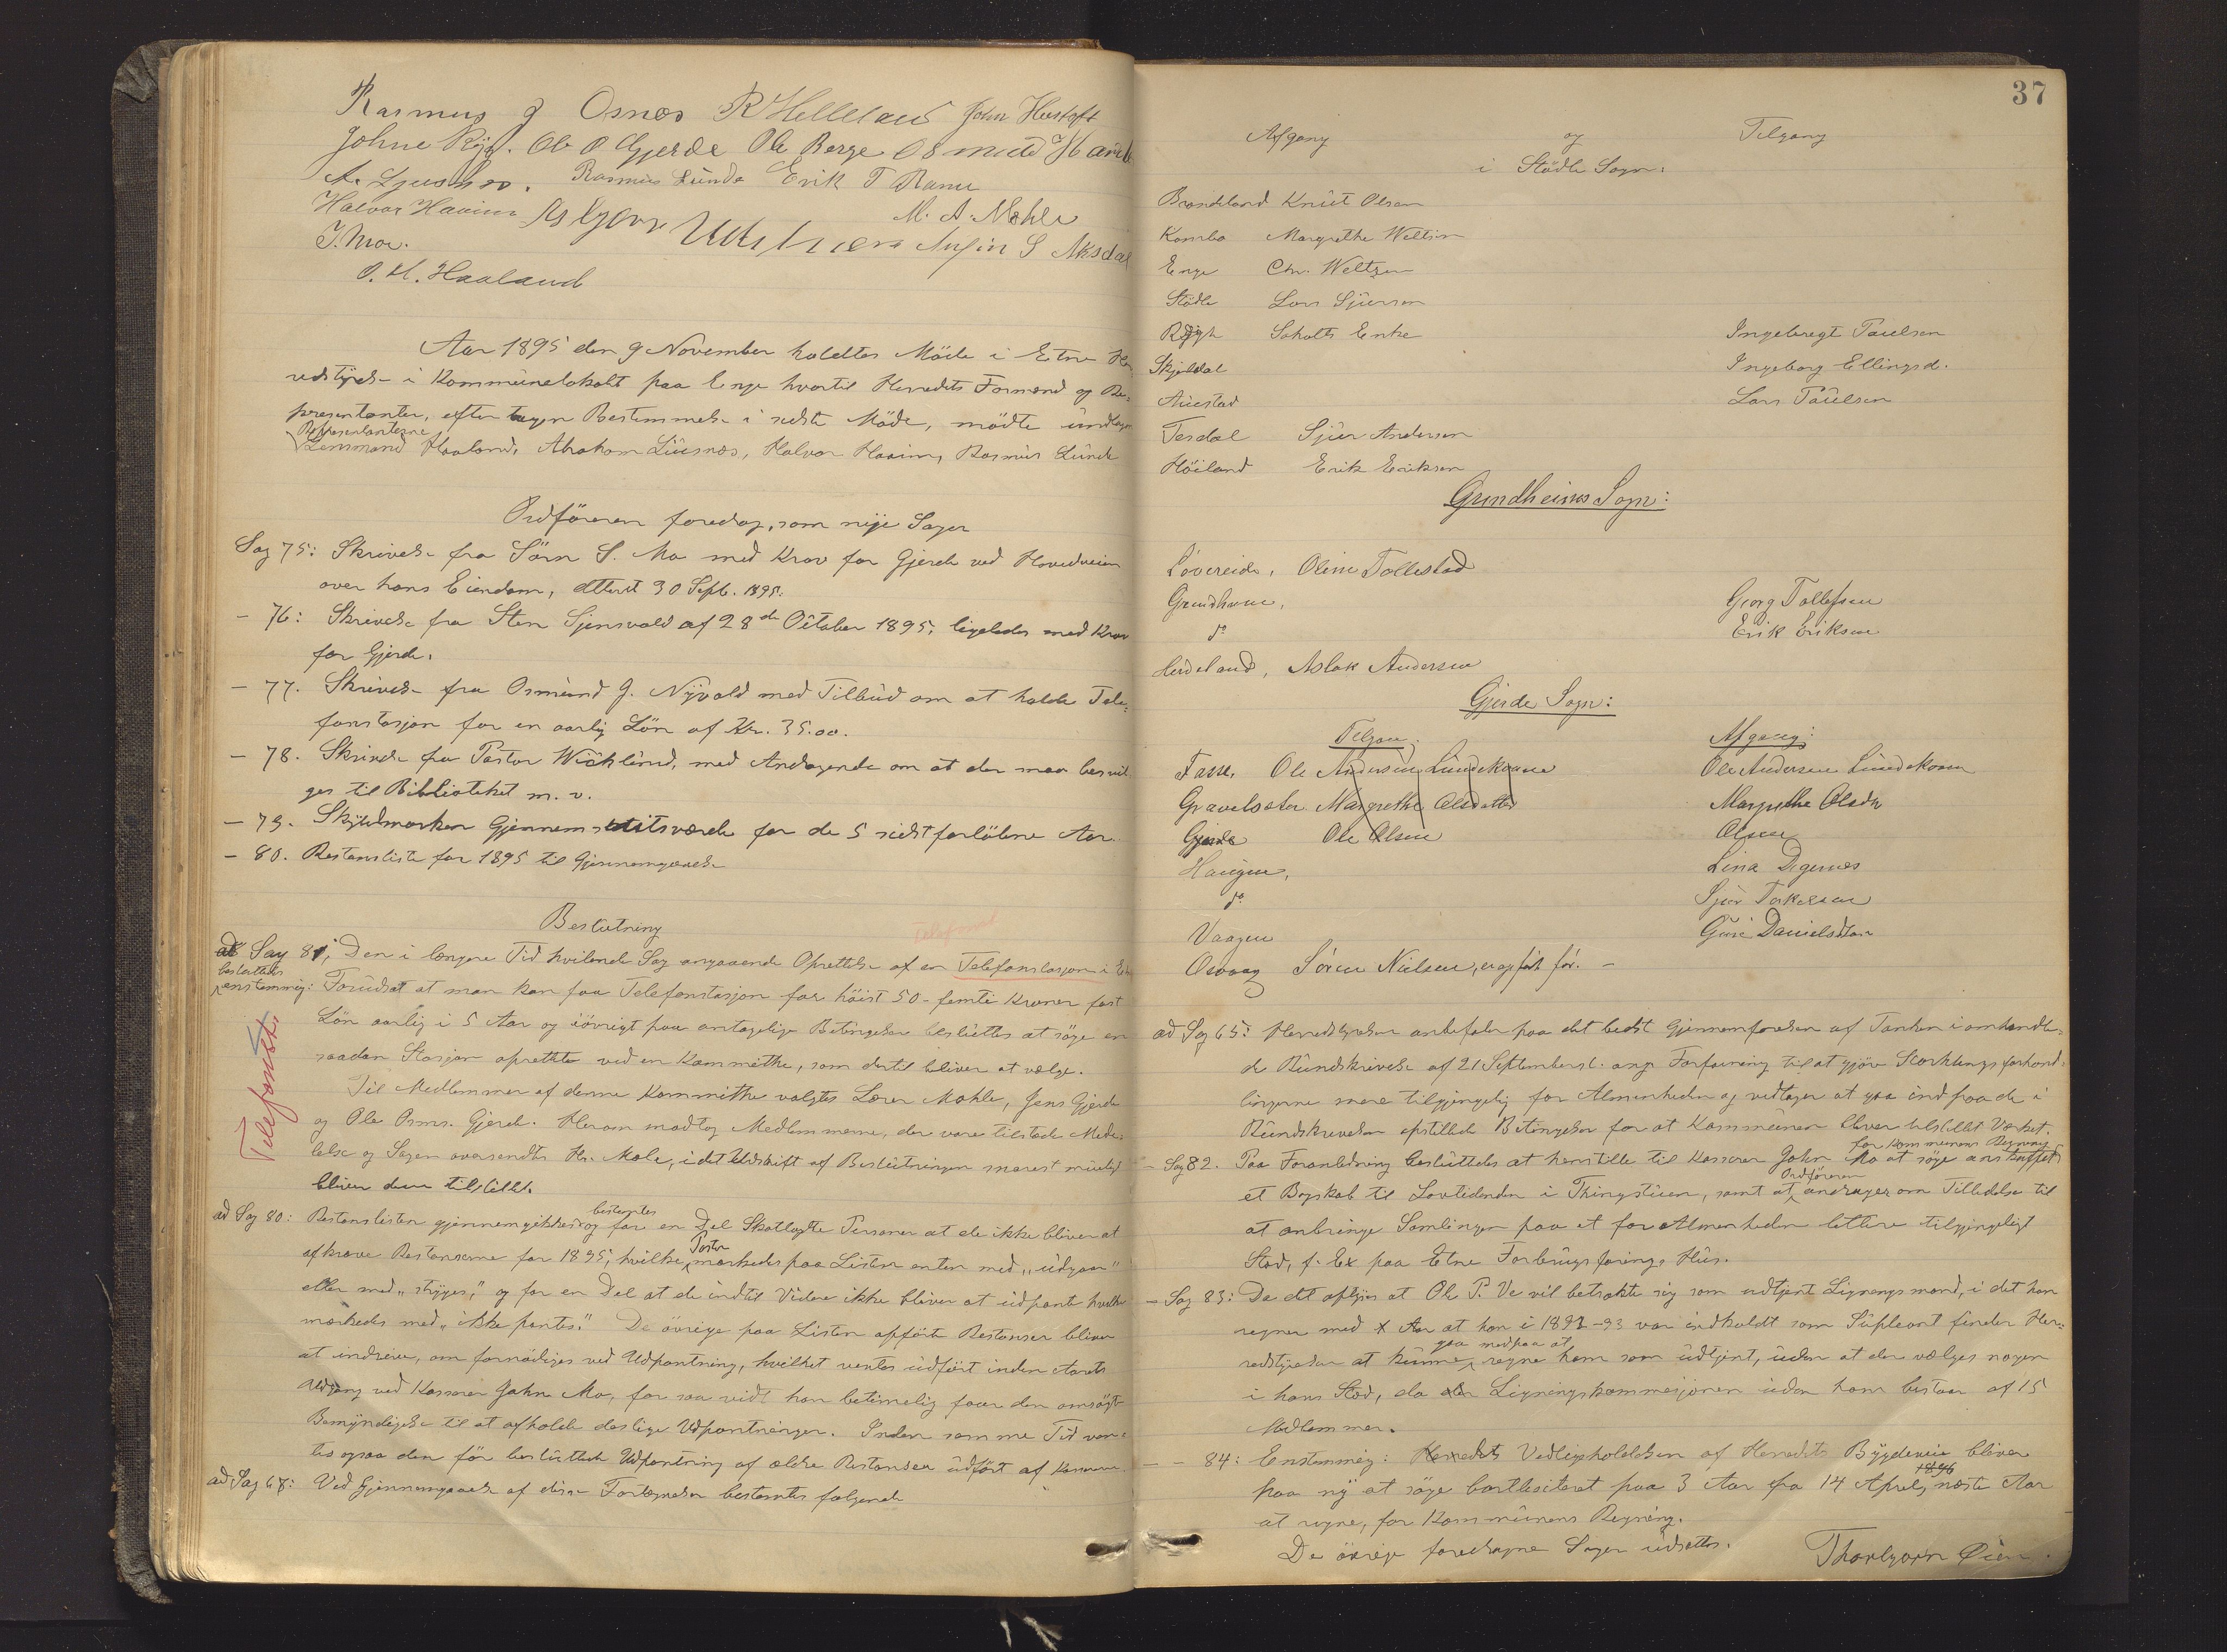 Rasmus J Osnes R Helleland John Hustoft
Johne Ryg. Ole O Gjerde Ole Berge Osmund
A. Ljusnes. Rasmus Lunde Erik T Rame
Halvor Haaim Asbjørn M. A. Mæhle
J. Moe. S Aksdal
O. H. Haaland
Aar 1895 den 9 November holdtes Möde i Etne Her-
redstyrelse i Kommunelokalet paa Enge hvortil Herredets Formænd og Re-
præsentanter, efter tagen Bestemmelse i sidste Möde, mödte undtagen
Repræsentanterne
Lensmand Haaland, Abraham Lüsnæs, Halvor Haaim, Rasmus Lunde
Ordföreren foredrog, som nye Sager
Sag 75: Skrivelse fra Sörn S. Mo med Krav for Gjerde ved Hovedveien
over hans Eiendom, dateret 30 Septb. 1895.
– 76: Skrivelse fra Sten Sjensvold af 28de October 1895, ligeledes med Krav
for Gjerde.
– 77. Skrivelse fra Osmund J. Nyvold med Tilbud om at holde Tele-
fonstasjon for en aarlig Lön af Kr. 35.00.
– 78. Skrivelse fra Pastor Wicklund, med Andragende om at der maa bevil-
ges til Bibliotheket m. v.
– 79. Skyldmarken Gjennemsnitsværdi for de 5 sidst forløbne Aar.
– 80. Restanseliste for 1895 til Gjennemgaaelse
Beslutning
Telefonst
ad Sag 81; Den i længere Tid hvilende Sag angaaende Oprettelse af en Telefonstasjon i Etne
besluttedes
enstemmig: Forudsat at man kan faa Telefonstasjon for höist 50 – femti Kroner fast
Lön aarlig i 5 Aar og iövrigt paa antagelige Betingelser besluttes at söge en
saadan Stasjon oprettet ved en Kommitthe, som dertil bliver at vælge.
Telefonst.
Til Medlemmer af denne Kommitthe valgtes Lærer Mæhle, Jens Gjerde
og Ole Osms. Gjerde. Herom modtog Medlemmerne, der vare tilstede Medde-
lelse og Sagen oversendtes Hr. Mæle, idet Udskrift af Beslutningen snarest muligt
bliver dem tilstillet.
bestemtes
ad Sag 80: Restanselisten gjennemgikkes og for en Del Skatlagte Personer at de ikke bliver at
Poster
afkræve Restanserne for 1895, hvilke markedes paa Listen enten med „udgaar"
eller med „stryges," og for en Del at de indtil Videre ikke bliver at udpante hvilke
mærkedes med „ikke pantes." De övrige paa Listen opførte Restanser bliver
at inddrive, om fornødiges ved Udpantning, hvilket ventes udfört inden Aarets
Udgang ved Kasserer John Mo, for saa vidt han betimelig faar den ansögte
Bemyndigelse til at afholde deslige Udpantninger. Inden samme Tid ven-
tes ogsaa den för besluttede Udpantning af ældre Restanser udfört af Kassereren.
ad Sag 68: Ved Gjennemgaaelse af disse Fortegnelser bestemtes følgende
37
Afgang og Tilgang
i Stödle Sogn:
Brandeland Knut Olsen
Kambo Margrethe Weltzin
Enge Chr. Weltzen
Stödle Lars Sjursen
Rygh Scholts Enke Ingebregt Paulsen
Skjeldal Ingeborg Ellingsd.
Austad Lars Paulsen
Tesdal Sjur Andersen
Höiland Erik Eriksen
Grindheims Sogn:
Løvereide, Oline Tollestad
Grindheim, Georg Tollefsen
do Erik Eriksen
Heideland, Aslak Andersen
Gjerde Sogn:
Tilgang: Afgang:
Fasse, Ole Andersen Lundekvam Ole Andersen Lundekvam
Gravelsæter Margrethe Olsdatter Margrethe Olsdtr
Gjerde Ole Olsen Olsen
Haugen, Lina Digernes
do Sjur Torkelsen
Vaagen Guri Danielsdtr
Osvaag Sören Nielsen, er opført før. –
ad Sag 65: Herredstyrelsen anbefaler paa det bedste Gjennemförelsen af Tanken i omhandle-
de Rundskrivelse af 21 September d. A. ang. Forføining til at gjöre Storthingsforhand-
lingerne mere tilgjængelig for Almenheden og vedtager at gaa ind paa de i
Rundskrivelsen opstillede Betingelser for at Kommunen bliver tilstillet Værket.
for Kommunens Regning
– Sag 82. Paa Foranledning besluttedes at henstille til Kasserer John Mo at söge anskaffet
Ordföreren
et Bogskab til Lovtidenden i Thingstuen, samt at andrager om Tilladelse til
at anbringe Samlingen paa et for Almenheden lettere tilgjængeligt
Sted, f. Ex paa Etne Forbrugsforenings Hus.
– Sag 83: Da det oplyses at Ole P. Ve vil betrakte sig som udtjent Ligningsmand, i det han
regner med Aar at han i 1892–93 var indkaldt som Supleant finder Her-
gaa med paa at
redstyrelsen at kunne regne ham som udtjent, uden at der vælges nogen
i hans Sted, da Ligningskommisjonen uden ham bestaar af 15
Medlemmer.
– – 84: Enstemmig: Herredets Vedligeholdelsen af Herredets Bygdeveie bliver
1896
paa ny at söge bortliciteret paa 3 Aar fra 14 April, næste Aar
at regne, for Kommunens Regning.
De övrige foredragne Sager udsattes. Thorbjørn Øien.